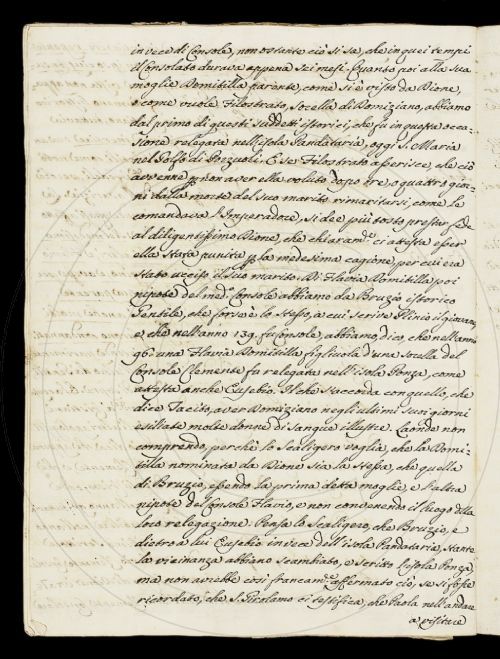 in vece di Console, non ostante ciò si sa, che in quei tempi
il Consolato durava appena sei mesi. Quanto poi alla sua
moglie Domitilla parente, come si è visto da Dione,
o come vuole Filostrato, sorella di Domiziano, abbiamo
dal primo di questi suddetti istorici, che fu in questa occa-
sione relegata nell'isola Pandataria, oggi S. Maria
nel Golfo di Pozzuoli. E se Filostrato asserisce, che ciò
avvenne per non aver ella voluto dopo tre, o quattro gior-
ni dalla morte del suo marito rimaritarsi, come le
comandava l'Imperadore, si dee più tosto prestar fede
al diligentissimo Dione, che chiaram.e ci attesta esser
ella stata punita per la medesima cagione, per cui era
stato ucciso il suo marito. Di Flavia Domitilla poi
nipote del med.o Console abbiamo da Bruzio istorico
Gentile, che forse è lo stesso, a cui scrive Plinio il giovane,
e che nell'anno 139. fu Console, abbiamo, dico, che nell'anno
96. una Flavia Domitilla figliuola d'una sorella del
Console Clemente fu relegata nell'isola Ponza, come
attesta anche Eusebio. Il che s'accorda con quello, che
dice Tacito, aver Domiziano negli ultimi suoi giorni
esiliate molte donne di sangue illustre. Laonde non
comprendo, perchè lo Scaligero voglia, che la Domi-
tilla nominata da Dione sia la stessa, che quella
di Bruzio, essendo la prima detta moglie, e l'altra
nipote del Console Flavio, e non convenendo il luogo della
loro relegazione. Pensa lo Scaligero, che Bruzio, e
dietro a lui Eusebio in vece dell'isola Pandataria, stante
la vicinanza abbiano scambiato, e scritto l'isola Ponza,
ma non avrebbe così francam.e affermato ciò, se si fosse
ricordato, che S. Girolamo ci testifica, che Paola nell'andare
a visitare